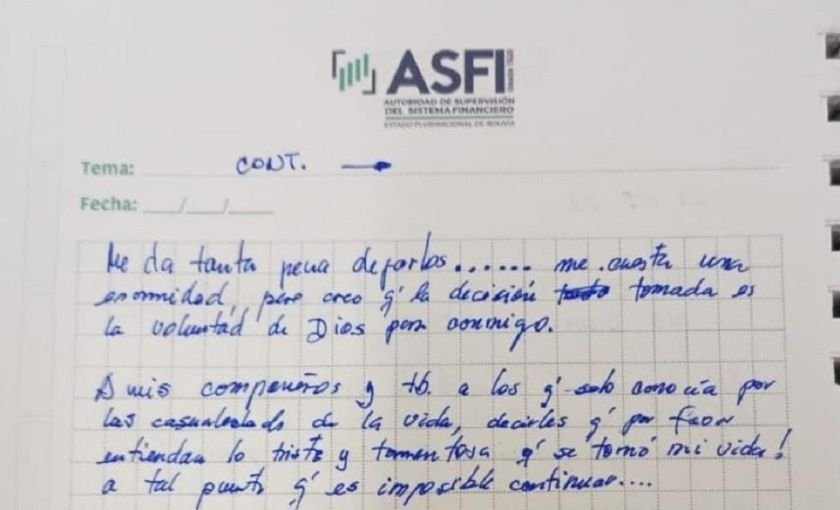 ASFI
AUTORIDAD DE SUPERVISIÓN
DEL SISTEMA FINANCIERO
ESTADO PLURINACIONAL DE BOLIVIA
Tema: CONT. →
Fecha: ___/___/___
Me da tanta pena dejarlos...... me cuesta una
enormidad, pero creo q' la decisión tomada es
la voluntad de Dios para conmigo.
A mis compañeros y tb. a los q' solo conocía por
las casualidads de la vida, decirles q' por favor
entiendan lo triste y tormentosa q' se tornó mi vida!
a tal punto q' es imposible continuar....